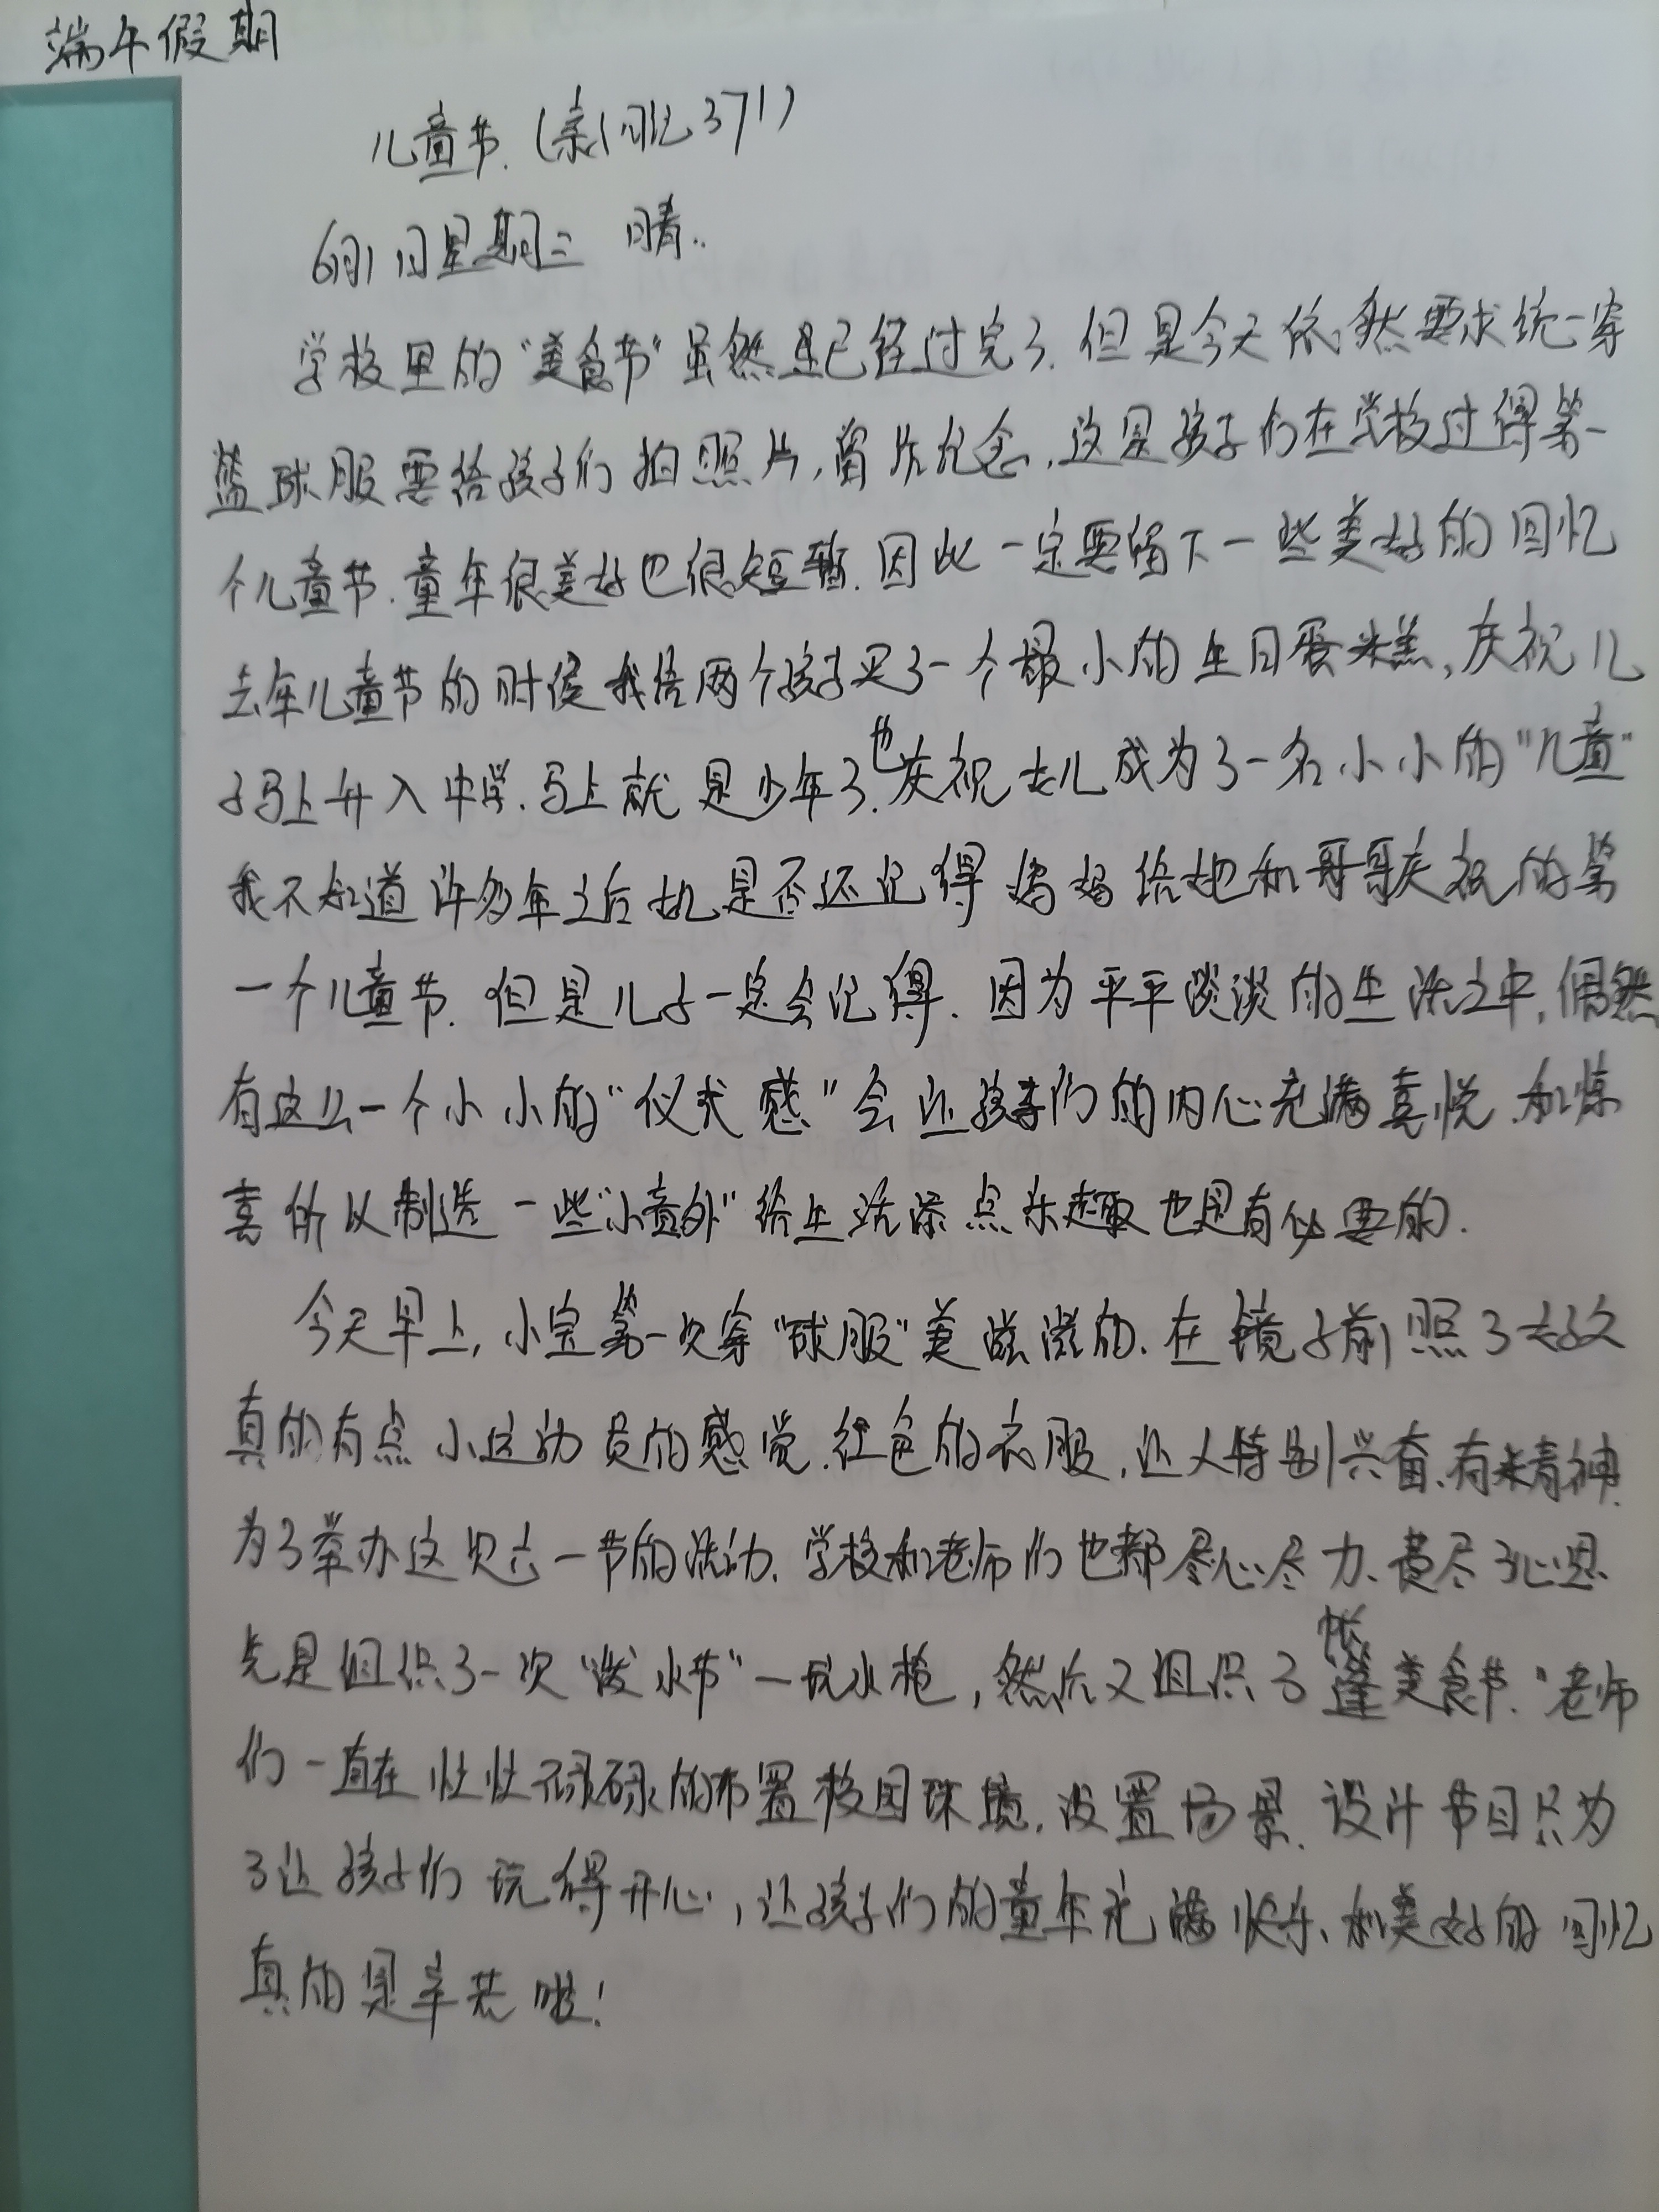 端午假期
儿童节.(亲子日记371)
6月1日星期三 晴..
学校里的“美食节”虽然是已经过完了.但是今天依然要求统一穿
篮球服要给孩子们拍照片,留作纪念,这是孩子们在学校过得第一
个儿童节.童年很美好也很短暂.因此一定要留下一些美好的回忆
去年儿童节的时候我给两个孩子买了一个最小的生日蛋糕,庆祝儿
子马上升入中学.马上就是少年了.也庆祝女儿成为了一名小小的“儿童”
我不知道许多年之后她是否还记得妈妈给她和哥哥庆祝的第
一个儿童节.但是儿子一定会记得.因为平平淡淡的生活之中,偶然
有这么一个小小的“仪式感”会让孩子们的内心充满喜悦.和惊
喜所以制造一些“小意外”给生活添点乐趣也是有必要的.
今天早上,小宝第一次穿“球服”美滋滋的.在镜子前照了去次
真的有点小运动员的感觉.红色的衣服,让人特别兴奋、有精神.
为了举办这次六一节的活动.学校和老师们也都尽心尽力、费尽了心思
先是组织了一次“泼水节”一玩水枪,然后又组织了帐篷美食节.“老师
们一直在忙忙碌碌的布置校园环境.设置场景.设计节目只为
了让孩子们玩得开心,让孩子们的童年充满快乐、和美好的回忆
真的是辛苦啦!